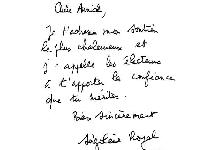 Chère Annick,
Je t'adresse mon soutien
le plus chaleureux et
j'appelle les électeurs
à t'apporter la confiance
que tu mérites.
Bien sincèrement
Ségolène Royal